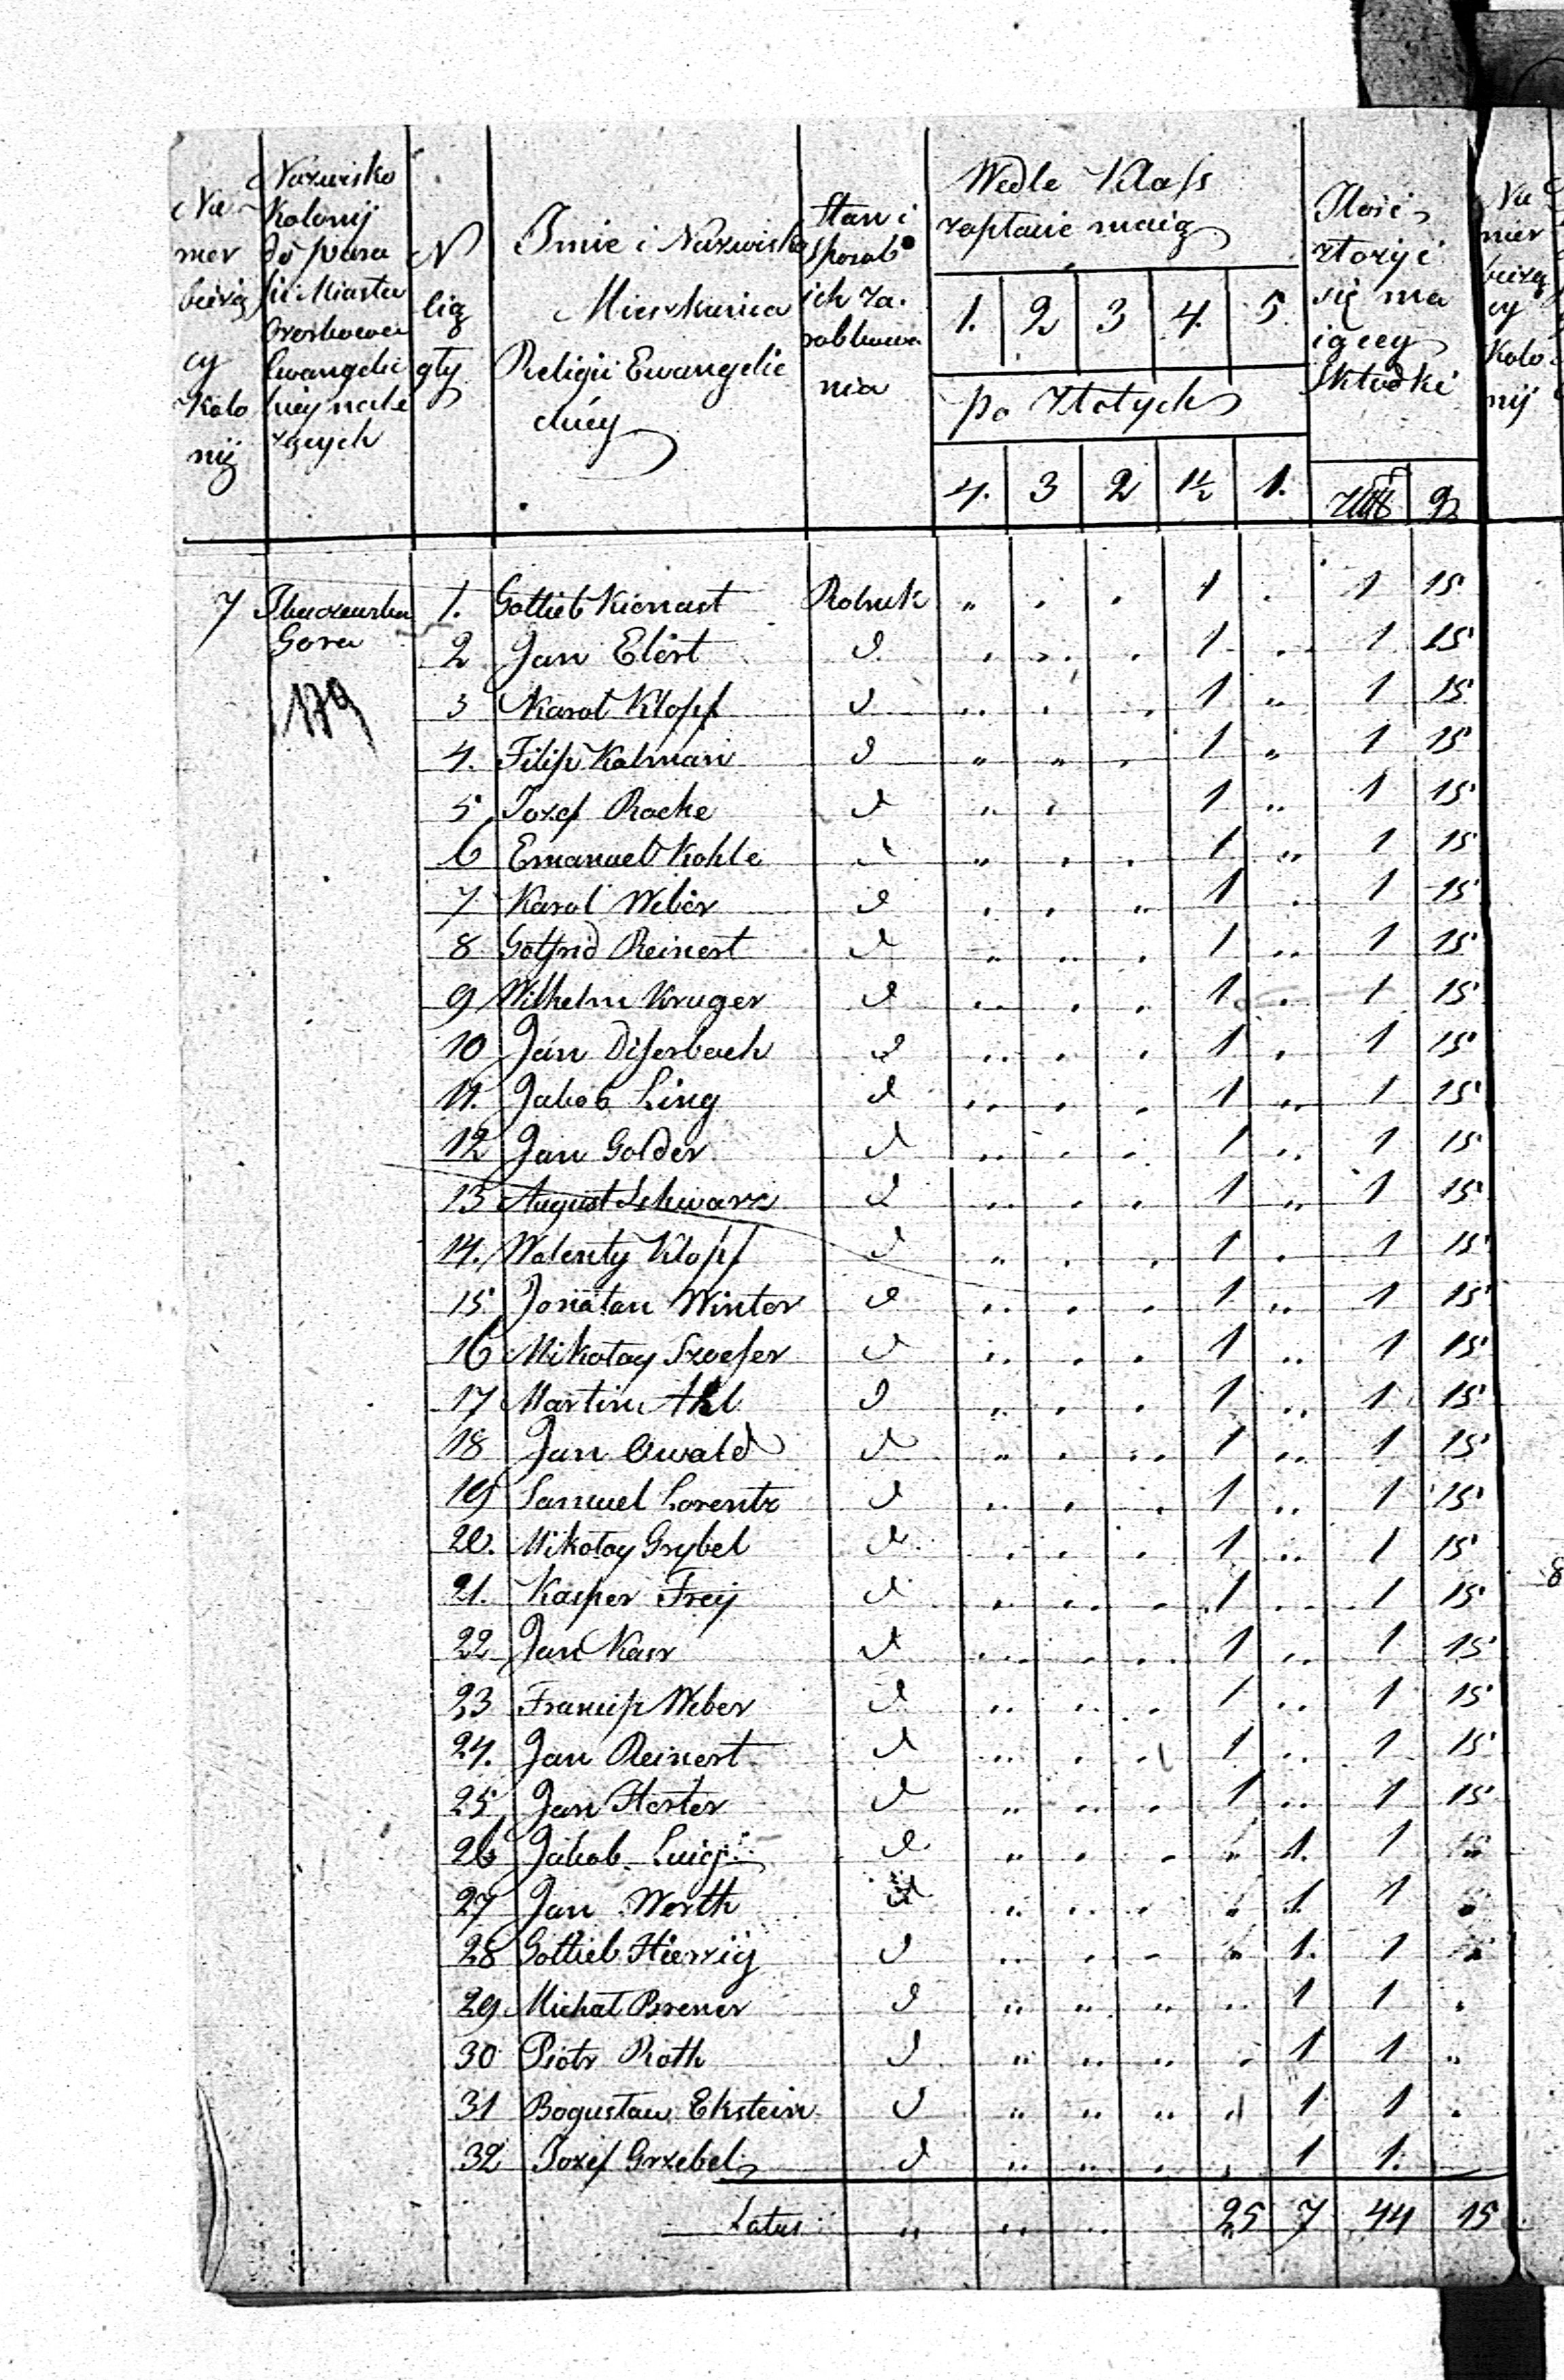 Numer bieżący Kolonij
Nazwisko Kolonij do para fii Miasta Ozorkowa Ewangelic kiey nale żących
N lią gły
Jmie i Nazwisko Mieszkańca Religii Ewangelic kiéy
Stan i sposob ich za robkowa nia
Wedle Klass zapłacić maią
1. 2 3 4. 5.
po Złotych
4. 3 2 1½ 1.
Ilość złożyć się ma iącey Składki
gr
Nu mer bieżą cy Kolo nij
7 Gora 1. Gottlieb Kienast Rolnik „ . . 1 . 1 15
2 Jan Elert d . .. . 1 .. 1 15
179
3 Karol Klopf d .. . . 1 „ 1 15
4. Filip Kalman d „ „ . 1 „ 1 15
5 Jozef Racke d „ . 1 .. 1 15
6 Emanuel Kohle d „ . . 1 .. 1 15
7 Karol Weber d . . .. 1 . 1 15
8 Gotfrid Reinert d .. .. . 1 .. 1 15
9 Wilhelm Kruger d .. . . 1 . 1 15
10 Jan Diferbach d .. . . 1 . 1 15
11. Jakob Ling d .. . . 1 .. 1 15
12 Jan Golder d .. . . 1 .. 1 15
13 August Schwarz d .. . . 1 .. 1 15
14. Walenty Klopf d „ . . 1 . 1 15
15 Jonatan Winter d .. . . 1 .. 1 15
16 Mikołay Szoefer d .. . . 1 .. 1 15
17 Martin Ahl d .. . . 1 .. 1 15
18 Jan Owald d .. . .. 1 .. 1 15
19 Samuel Lorentz d .. . . 1 .. 1 15
20. Mikołay Grybel d . . . 1 .. 1 15
21. Kasper Frey d .. .. . 1 .. 1 15
8
22 Jan Kasr d .. . . 1 .. 1 15
23 Weber d .. .. . 1 .. 1 15
24. Jan Reinert d .. . 1 .. 1 15
25 Jan Herter d .. .. . 1 .. 1 15
26 Jakob d „ . . „ 1. 1 „
27 Jan Werth d .. .. . „ 1 1
28 Gottlieb d .. . . „ 1. 1
29 Michał Brener d „ „ „ .. 1 1 .
30 Piotr Roth d „ .. .. . 1 1 „
31 Bogusław Ekstein d „ .. „ „ 1 1 .
32 Jozef Grzebel d .. „ . . 1 1.
Latus „ .. .. 25 7 44 15